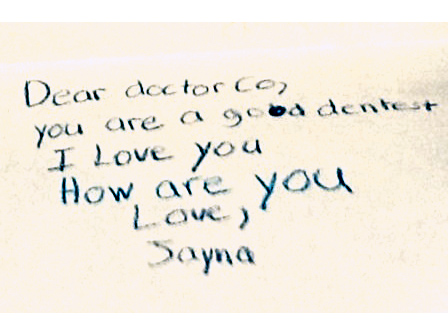 Dear doctor Co,
you are a good dentest
I Love you
How are you
Love,
Jayna